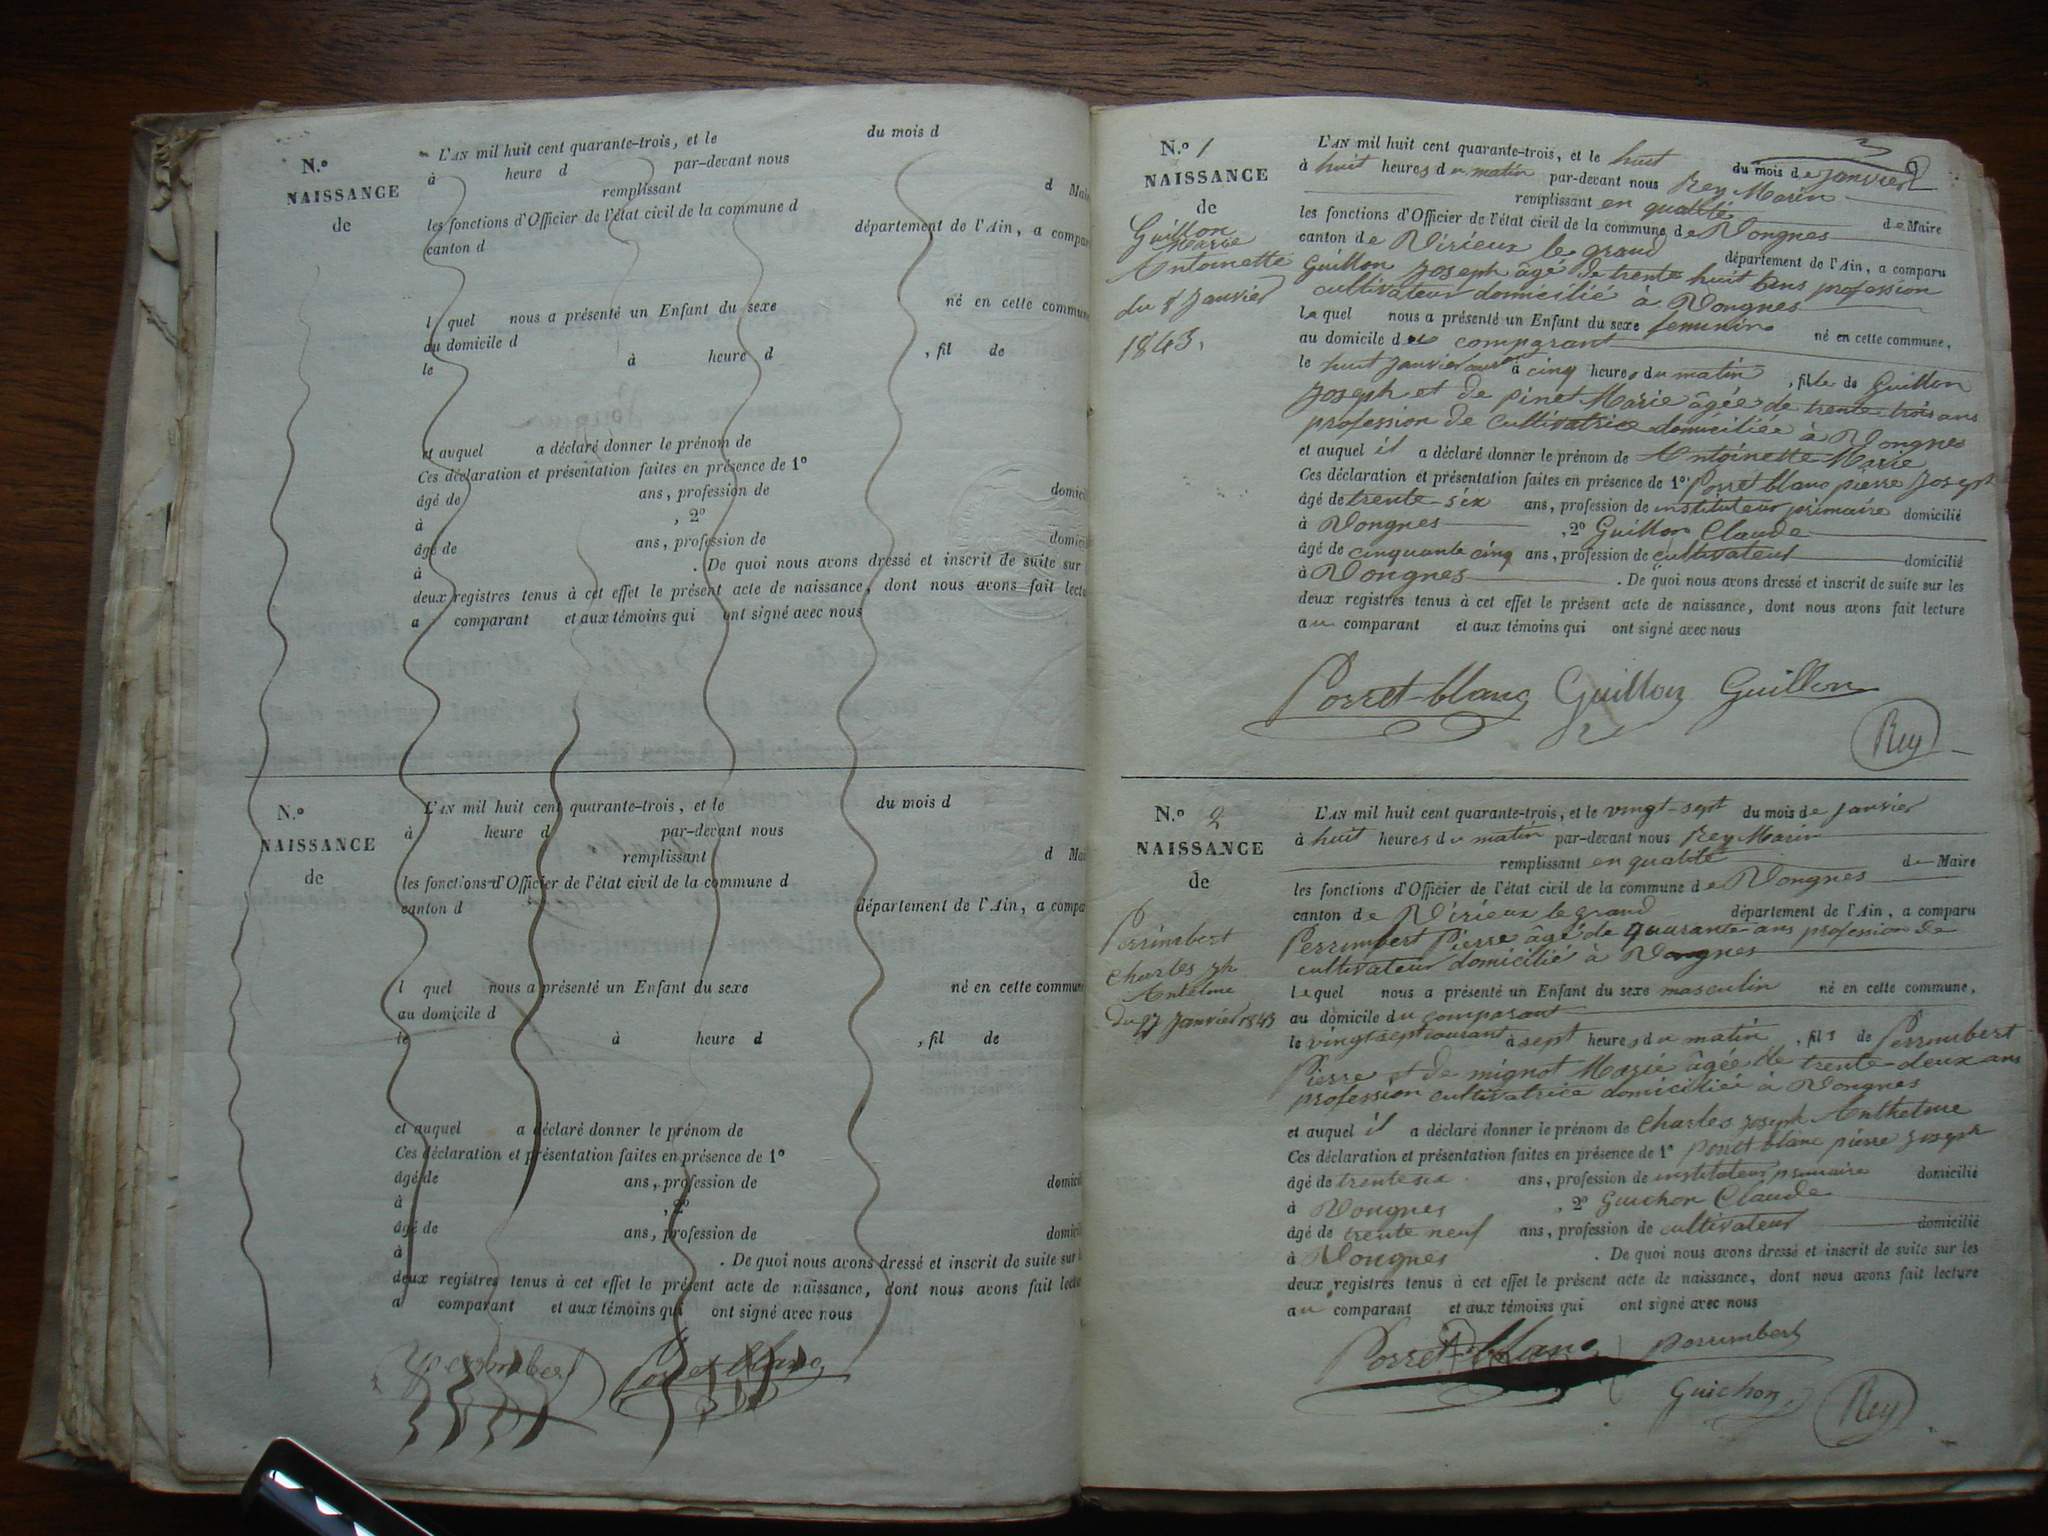 N.º
NAISSANCE
de
L'AN mil huit cent quarante-trois, et le du mois d
à heure d par-devant nous
remplissant d Mair
les fonctions d'Officier de l'état civil de la commune d
canton d département de l'Ain, a compar
l quel nous a présenté un Enfant du sexe né en cette commune
au domicile d
le à heure d , fil de
et auquel a déclaré donner le prénom de
Ces déclaration et présentation faites en présence de 1º
âgé de ans, profession de domici
à , 2º
âgé de ans, profession de domici
à . De quoi nous avons dressé et inscrit de suite sur
deux registres tenus à cet effet le présent acte de naissance, dont nous avons fait lectu
a comparant et aux témoins qui ont signé avec nous
N.º
NAISSANCE
de
L'AN mil huit cent quarante-trois, et le du mois d
à heure d par-devant nous
remplissant d Mai
les fonctions d'Officier de l'état civil de la commune d
canton d département de l'Ain, a compar
l quel nous a présenté un Enfant du sexe né en cette commune
au domicile d
le à heure d , fil de
et auquel a déclaré donner le prénom de
Ces déclaration et présentation faites en présence de 1º
âgé de ans, profession de domicil
à , 2º
âgé de ans, profession de domicil
à . De quoi nous avons dressé et inscrit de suite sur l
deux registres tenus à cet effet le présent acte de naissance, dont nous avons fait lectu
a comparant et aux témoins qui ont signé avec nous
Perrimbert Porret-blanc
N.º 1
NAISSANCE
de
Guillon
Marie
Antoinette
du 8 Janvier
1843.
L'AN mil huit cent quarante-trois, et le huit du mois de Janvier
à huit heures du matin par-devant nous Rey Marin
remplissant en qualité de Maire
les fonctions d'Officier de l'état civil de la commune de Vongnes
canton de Virieux le grand département de l'Ain, a comparu
Guillon Joseph âgé de trente huit ans profession
cultivateur domicilié à Vongnes
lequel nous a présenté un Enfant du sexe feminin né en cette commune,
au domicile du comparant
le huit Janvier à cinq heures du matin , fille de Guillon
Joseph et de pinet Marie âgée de trente trois ans
profession de cultivatrice domiciliée à Vongnes
et auquel il a déclaré donner le prénom de Antoinette Marie
Ces déclaration et présentation faites en présence de 1º Porret blanc pierre Joseph
âgé de trente-six ans, profession de instituteur primaire domicilié
à Vongnes , 2º Guillon Claude
âgé de cinquante cinq ans, profession de cultivateur domicilié
à Vongnes . De quoi nous avons dressé et inscrit de suite sur les
deux registres tenus à cet effet le présent acte de naissance, dont nous avons fait lecture
au comparant et aux témoins qui ont signé avec nous
Porret-blanc Guillon Guillon
Rey
N.º 2
NAISSANCE
de
Perrimbert
Charles jh
Antelme
du 27 Janvier 1843
L'AN mil huit cent quarante-trois, et le vingt-sept du mois de Janvier
à huit heures du matin par-devant nous Rey Marin
remplissant en qualité de Maire
les fonctions d'Officier de l'état civil de la commune de Vongnes
canton de Virieux le grand département de l'Ain, a comparu
Perrimbert Pierre âgé de quarante ans profession de
cultivateur domicilié à Vongnes
lequel nous a présenté un Enfant du sexe masculin né en cette commune,
au domicile du comparant
le vingt sept courant à sept heures du matin , fils de Perrimbert
Pierre et de mignot Marie âgée de trente-deux ans
profession cultivatrice domiciliée à Vongnes
et auquel il a déclaré donner le prénom de Charles Joseph Anthelme
Ces déclaration et présentation faites en présence de 1º Porret blanc pierre Joseph
âgé de trente six ans, profession de instituteur primaire domicilié
à Vongnes , 2º Guichon Claude
âgé de trente neuf ans, profession de cultivateur domicilié
à Vongnes . De quoi nous avons dressé et inscrit de suite sur les
deux registres tenus à cet effet le présent acte de naissance, dont nous avons fait lecture
au comparant et aux témoins qui ont signé avec nous
Porret-blanc Perrimbert
Guichon Rey